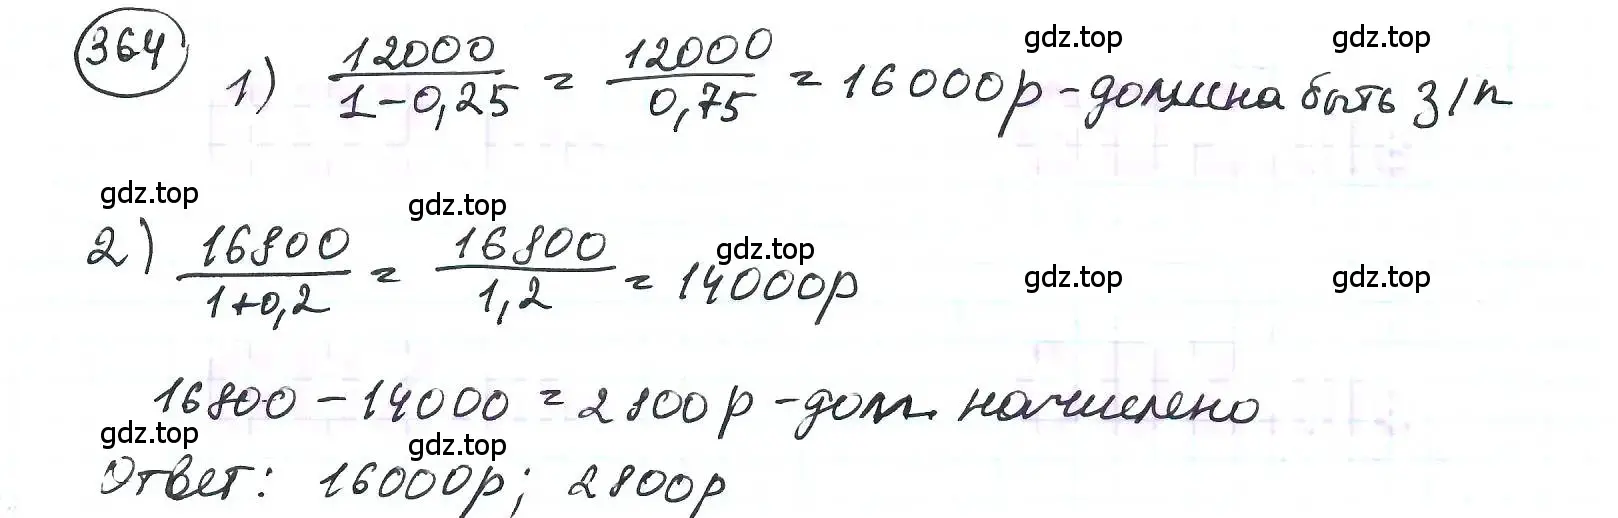 364
1) 12000 / 1-0,25 = 12000 / 0,75 = 16000р - должна быть з/п
2) 16800 / 1+0,2 = 16800 / 1,2 = 14000р
16800 - 14000 = 2800р - долж. начислено
Ответ: 16000р; 2800р
gdz.top gdz.top
gdz.top gdz.top gdz.top gdz.top gdz.top
gdz.top gdz.top